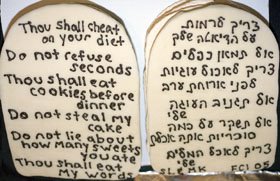 Thou shall cheat
on your diet
Do not refuse
seconds
Thou shall eat
cookies before
dinner
Do not steal my
cake
Do not lie about
how many sweets
you ate
Thou shall eat
my words
צריך לרמות
על הדיאטה שלך
אל תמאן כפלים
צריך לאכול עוגיות
לפני ארוחת ערב
אל תגנוב העוגה
שלי
אל תשקר על כמה
סוכריות אתה אכלת
צריך לאכול המלים
שלי
SLEMK ECI 05